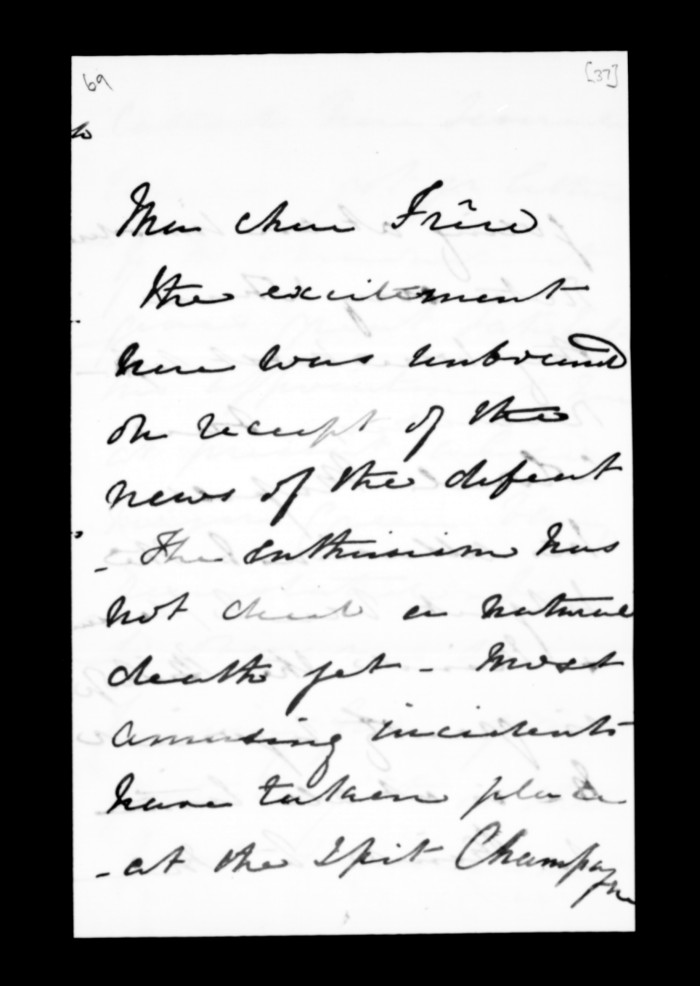 69
[37]
to
Mon cher Frère
The excitement
here was unbound
on receipt of the
news of the defeat
- The enthusiasm has
not died a natural
death yet - Most
amusing incidents
have taken place
- at the Spit Champagne